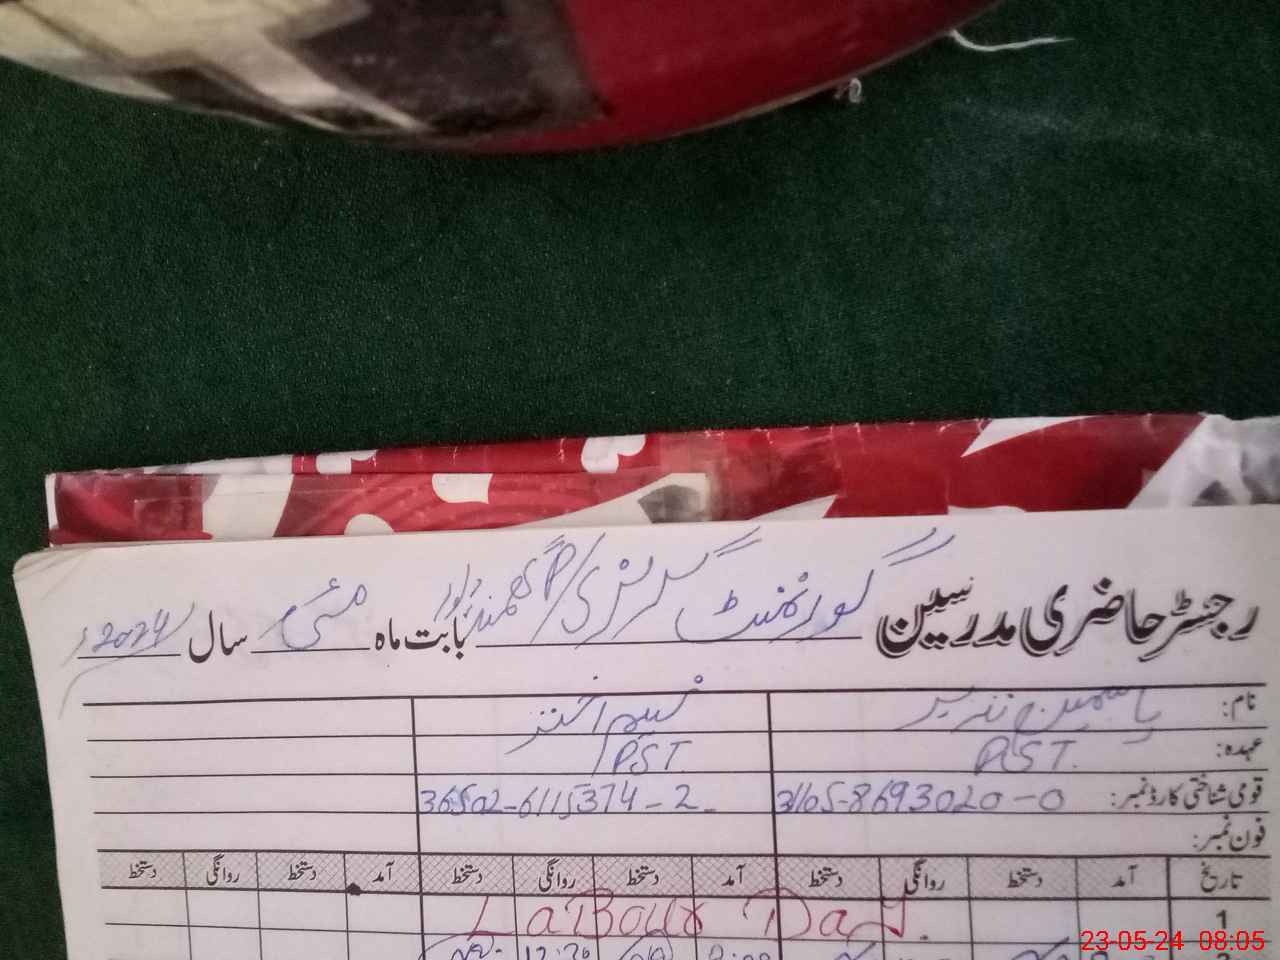 رجسٹر حاضری مدرسین گورنمنٹ گرلز بابت ماہ مئی سال 2024ء
نام: یاسمین نذیر نسیم اختر
عہدہ: PST. PST
قومی شناختی کارڈ نمبر: 31105-8693020-0 36502-6115374-2
فون نمبر:
تاریخ آمد دستخط روانگی دستخط آمد دستخط روانگی دستخط آمد دستخط روانگی دستخط
1 Labour Day.
23-05-24 08:05